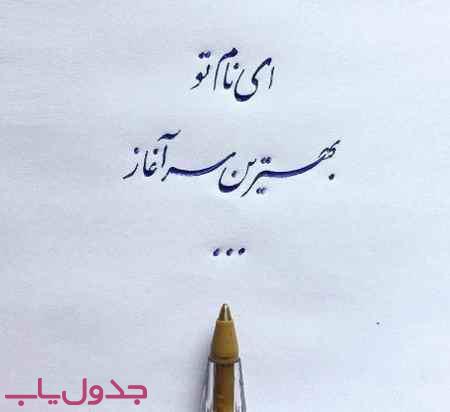 ای نام تو
بهترین سرآغاز
...
جدول‌یاب